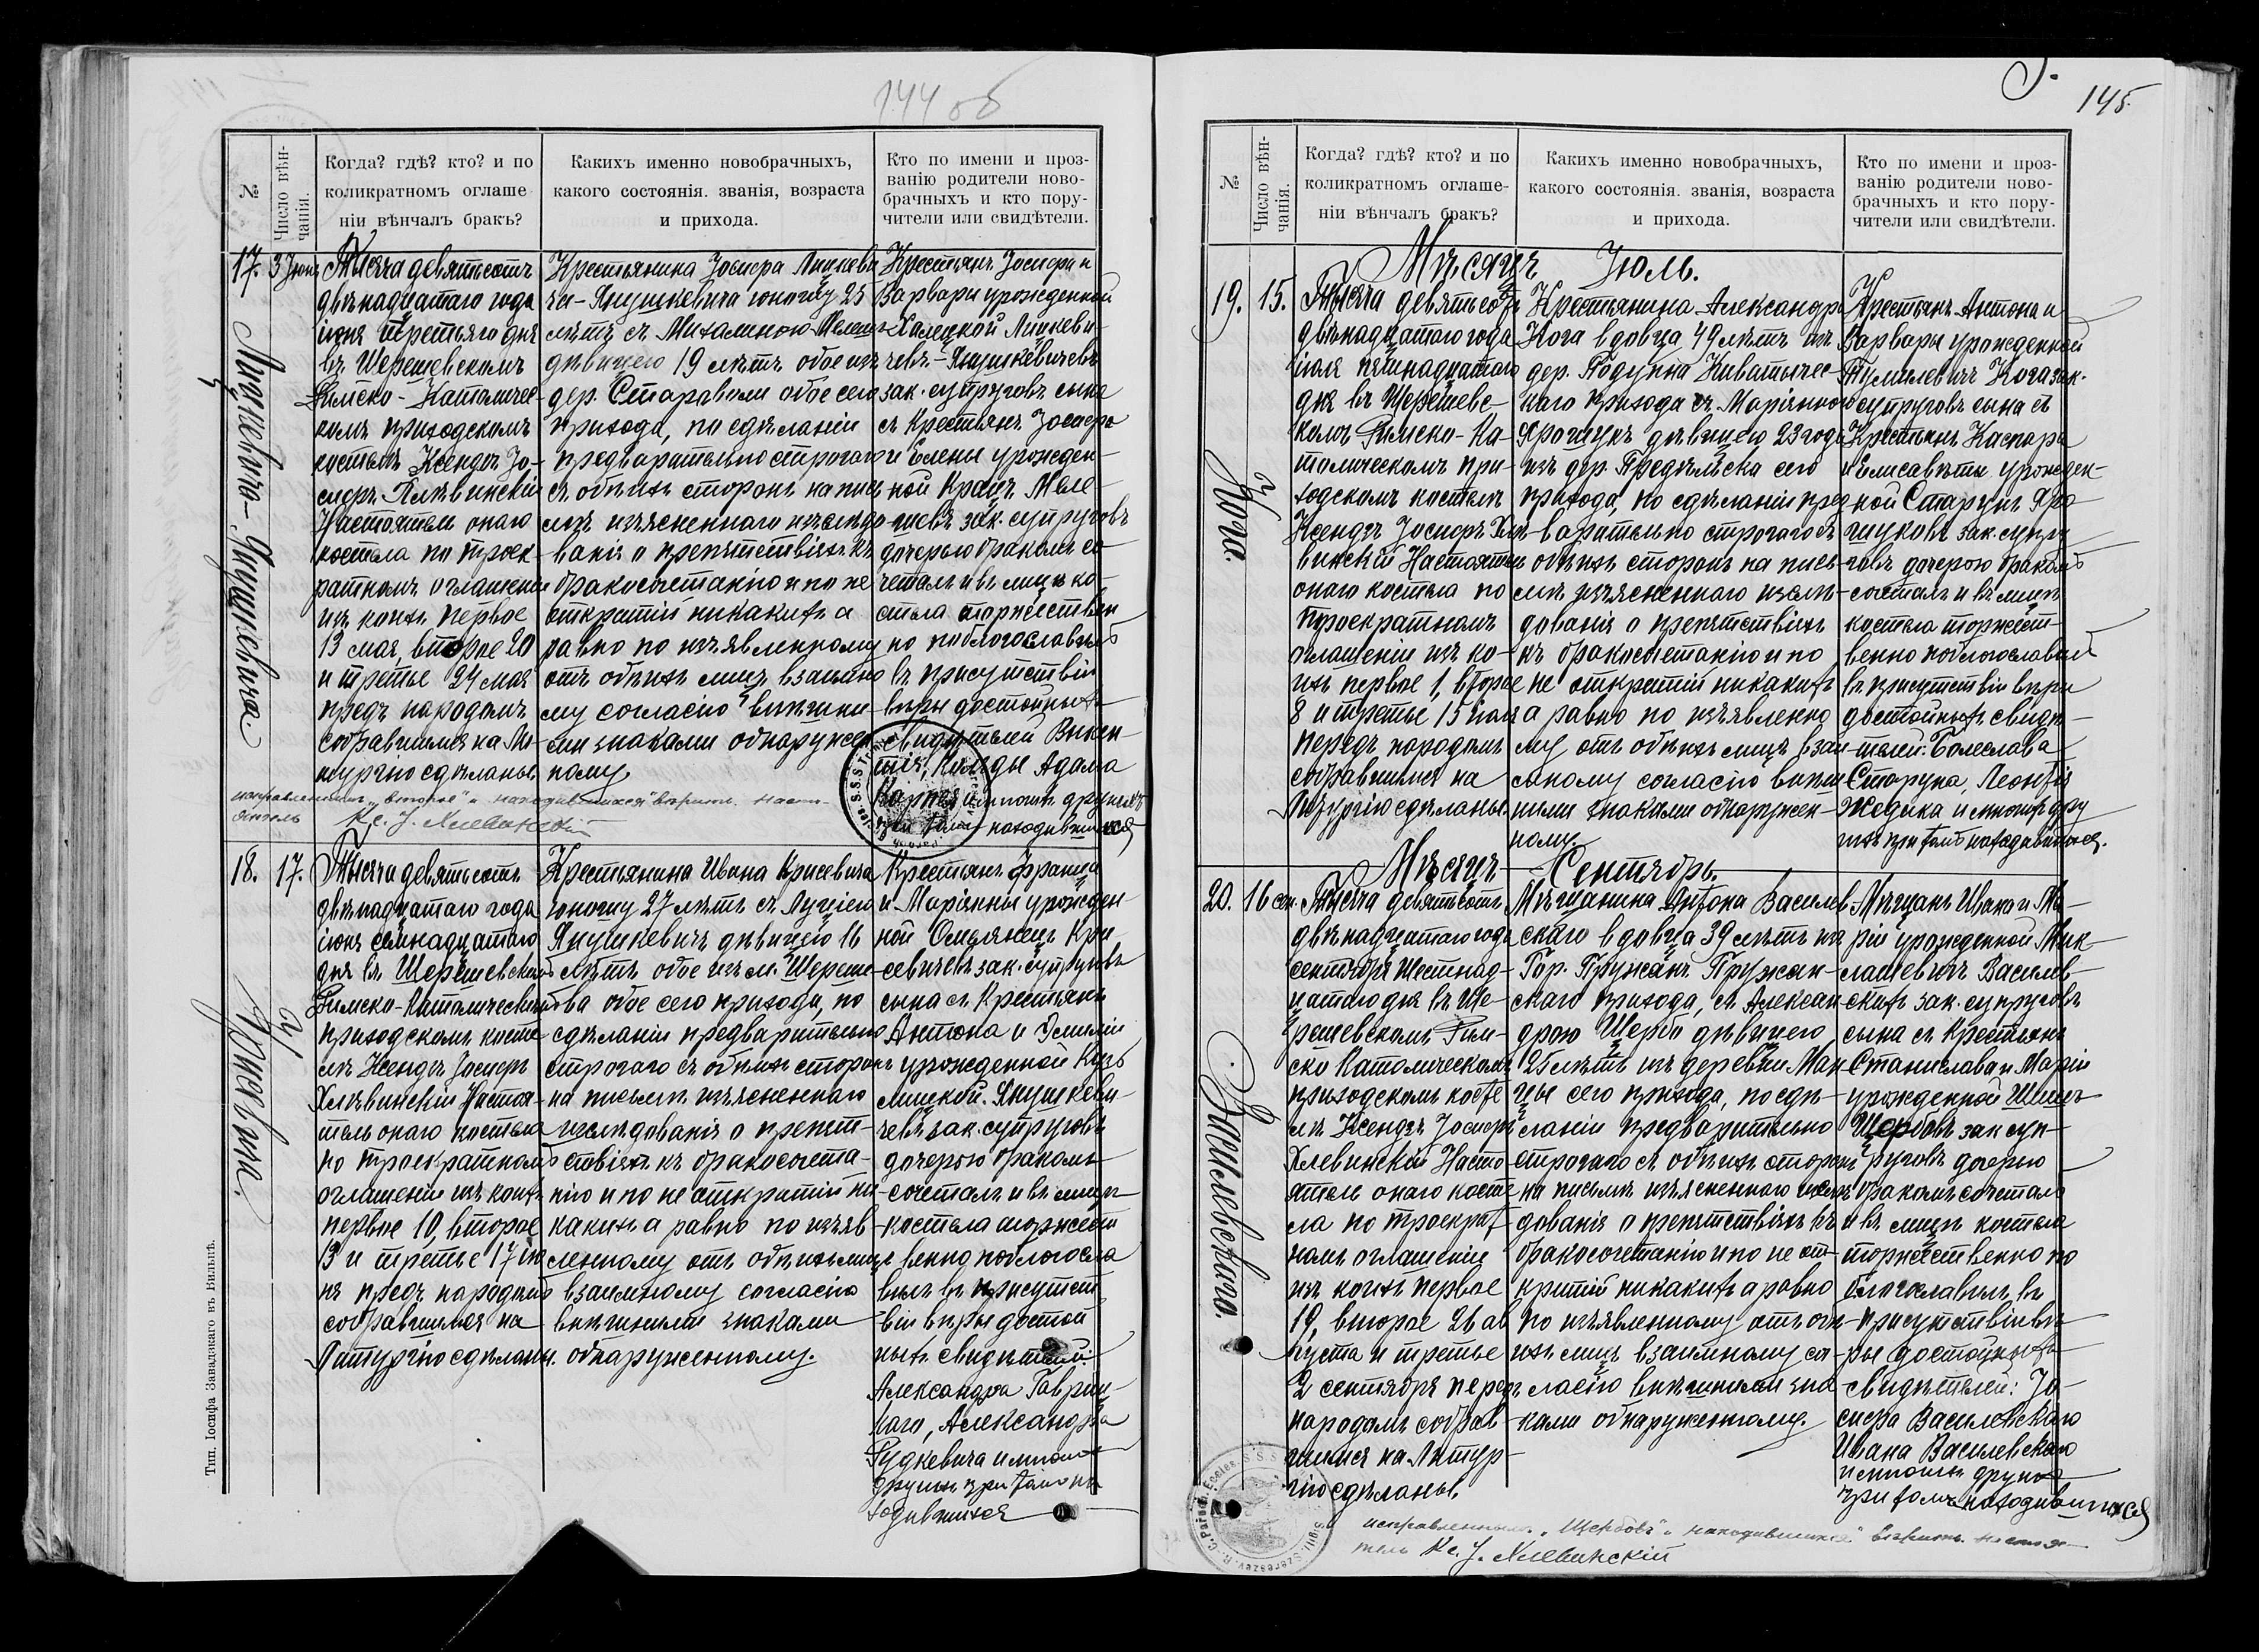 144 об
№
Число вѣн-
чанія.
Когда? гдѣ? кто? и по
коликратномъ оглаше
ніи вѣнчалъ бракъ?
Какихъ именно новобрачныхъ,
какого состоянія. званія, возраста
и прихода.
Кто по имени и проз-
ванію родители ново-
брачныхъ и кто пору-
чители или свидѣтели.
17.
3 Іюня
Тысяча девятьсотъ
двѣнадцатаго года
іюня третьяго дня
въ Шерешевскомъ
Римско-Католичес-
комъ приходскомъ
костелѣ Ксендзъ Іо-
сифъ Хлѣвинскій
Настоятель онаго
костела по троек-
ратномъ оглашеніи
изъ коихъ первое
13 мая, второе 20
и третье 24 мая
предъ народомъ
собравшимся на Ли-
тургію сдѣланы.
Крестьянина Іосифа Лицкеви
ча-Янушкевича юношу 25
лѣтъ съ Михалиною Мелешъ
дѣвицею 19 лѣтъ обое изъ
дер. Староволи обое сего
прихода, по сдѣланіи
предварительно строгаго
съ обѣихъ сторонъ на пись
мѣ изъясненнаго изслѣдо
ванія о препятствіяхъ къ
бракосочетанію и по не
открытіи никакихъ а
равно по изъявленному
отъ обѣихъ лицъ взаимно
му согласію внѣшни
ми знаками обнаружен
ному.
Крестьянъ Іосифа и
Варвары урожденной
Халецкой Лицкеви-
чевъ-Янушкевичевъ
зак. супруговъ сына
съ Крестьянъ Іосифа
и Елены урожден-
ной Крацъ Меле-
шевъ зак. супруговъ
дочерью бракомъ со
четалъ и въ лицѣ ко-
стела торжествен
но поблагославилъ
въ присутствіи
вѣры достойныхъ
свидѣтелей Викен
тія, Коляды Адама
и многихъ другихъ
при томъ находившихся
Лицкевича-Янушкевича
исправленнымъ „второе" и „находившихся" вѣрить. Насто-
ятель Кс. І. Хлѣвинскій
18.
17.
Тысяча девятьсотъ
двѣнадцатаго года
іюня семнадцатаго
дня въ Шерешевскомъ
Римско-Католическомъ
приходскомъ косте
лѣ Ксендзъ Іосифъ
Хлѣвинскій Настоя-
тель онаго костела
по троекратномъ
оглашеніи изъ коихъ
первое 10, второе
13 и третье 17 ію
ня предъ народомъ
собравшимся на
Литургію сдѣланы.
Крестьянина Ивана Крисевича
юношу 27 лѣтъ съ Луціею
Янушкевичъ дѣвицею 16
лѣтъ обое изъ м. Шереше-
ва обое сего прихода, по
сдѣланіи предварительно
строгаго съ обѣихъ сторонъ
на письмѣ изъясненнаго
изслѣдованія о препят-
ствіяхъ къ бракосочета-
нію и по не открытіи ни-
какихъ а равно по изъяв-
ленному отъ обѣихъ лицъ
взаимному согласію
внѣшними знаками
обнаруженному.
Крестьянъ Франца
и Маріанны урожден-
ной Кри-
севичевъ зак. супруговъ
сына съ Крестьянъ
Антона и Эмиліи
урожденной
Янушкеви-
чевъ зак. супруговъ
дочерью бракомъ
сочеталъ и въ лицѣ
костела торжест
венно поблагосла
вилъ въ присутст
віи вѣры достой
ныхъ свидѣтелей
Александра Гаври
Александра
Рудкевича и многихъ
другихъ при томъ на
ходившихся
Тип. Іосифа Завадзкаго въ Вильнѣ.
145.
№
Число вѣн-
чанія.
Когда? гдѣ? кто? и по
коликратномъ оглаше-
ніи вѣнчалъ бракъ?
Какихъ именно новобрачныхъ,
какого состоянія. званія, возраста
и прихода.
Кто по имени и проз-
ванію родители ново-
брачныхъ и кто пору-
чители или свидѣтели.
Мѣсяцъ Іюль.
19.
15.
Тысяча девятьсотъ
двѣнадцатаго года
іюля пятнадцатаго
дня въ Шерешевс-
комъ Римско-Ка-
толическомъ при-
ходскомъ костелѣ
Ксендзъ Іосифъ Хлѣ-
винскій Настоятель
онаго костела по
троекратномъ
оглашеніи изъ ко-
ихъ первое 1, второе
8 и третье 15 іюля
передъ народомъ
собравшимся на
Литургію сдѣланы.
Крестьянина Александра
Кога вдовца 49 лѣтъ изъ
дер. Киватычес-
каго прихода съ Маріанною
Ярошукъ дѣвицею 23 года
изъ дер. сего
прихода, по сдѣланіи пред
варительно строгаго съ
обѣихъ сторонъ на пись-
мѣ изъясненнаго изслѣ-
дованія о препятствіяхъ
къ бракосочетанію и по
не открытіи никакихъ
а равно по изъявленно
му отъ обѣихъ лицъ взаи
мному согласію внѣш
ними знаками обнаружен-
ному.
Крестьянъ Антона и
Варвары урожденной
Тумилевичъ Кога зак.
супруговъ сына съ
Крестьянъ Каспара
и Елисаветы урожден-
ной Старунъ Яро
шуковъ зак. супру
говъ дочерью бракомъ
сочеталъ и въ лицѣ
костела торжест-
венно поблагославилъ
въ присутствіи вѣры
достойныхъ свидѣ-
телей: Болеслава
Старуна, Леонтія
Жедика и многихъ дру
гихъ при томъ находившихся.
Кога.
Мѣсяцъ Сентябрь.
20.
16 сен.
Тысяча девятьсотъ
двѣнадцатаго года
сентября шестнад-
цатаго дня въ Ше-
решевскомъ Рим-
ско Католическомъ
приходскомъ косте
лѣ Ксендзъ Іосифъ
Хлевинскій Насто-
ятель онаго косте
ла по троекрат-
номъ оглашеніи
изъ коихъ первое
19, второе 26 ав
густа и третье
2 сентября передъ
народомъ собрав-
шимся на Литур-
гію сдѣланы.
Мѣщанина Антона Василев
скаго вдовца 39 лѣтъ изъ
Гор. Пружанъ Пружан-
скаго прихода, съ Алексан
дрою Щерба дѣвицею
25 лѣтъ изъ деревни Ман
цы сего прихода, по сдѣ-
ланіи предварительно
строгаго съ обѣихъ сторонъ
на письмѣ изъясненнаго изслѣ
дованія о препятствіяхъ къ
бракосочетанію и по не от-
крытіи никакихъ а равно
по изъявленному отъ обѣ-
ихъ лицъ взаимному со-
гласію внѣшними зна
ками обнаруженному.
Мѣщанъ Ивана и Ма-
ріи урожденной Мик-
лашевичъ Василев-
скихъ зак. супруговъ
сына съ Крестьянъ
Станислава и Маріи
урожденной
Щербовъ зак суп-
руговъ дочерью
бракомъ сочеталъ
и въ лицѣ костела
торжественно по
благославилъ въ
присутствіи вѣ-
ры достойныхъ
свидѣтелей: Іо-
сифа Василевскаго
Ивана Василевскаго
и многихъ другихъ
при томъ находившихся
Василевскаго
исправленнымъ „Щербовъ" и „находившихся" вѣрить. Настоя-
тель Кс. І. Хлѣвинскій